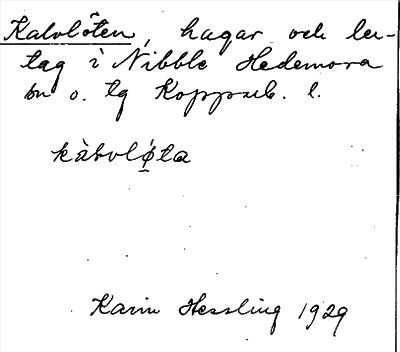 Kalvlöten, hagar och ler-
tag i Nibble Hedemora
sn o. tg Kopparb. l.
kàlvlø̱ta
Karin Hessling 1929